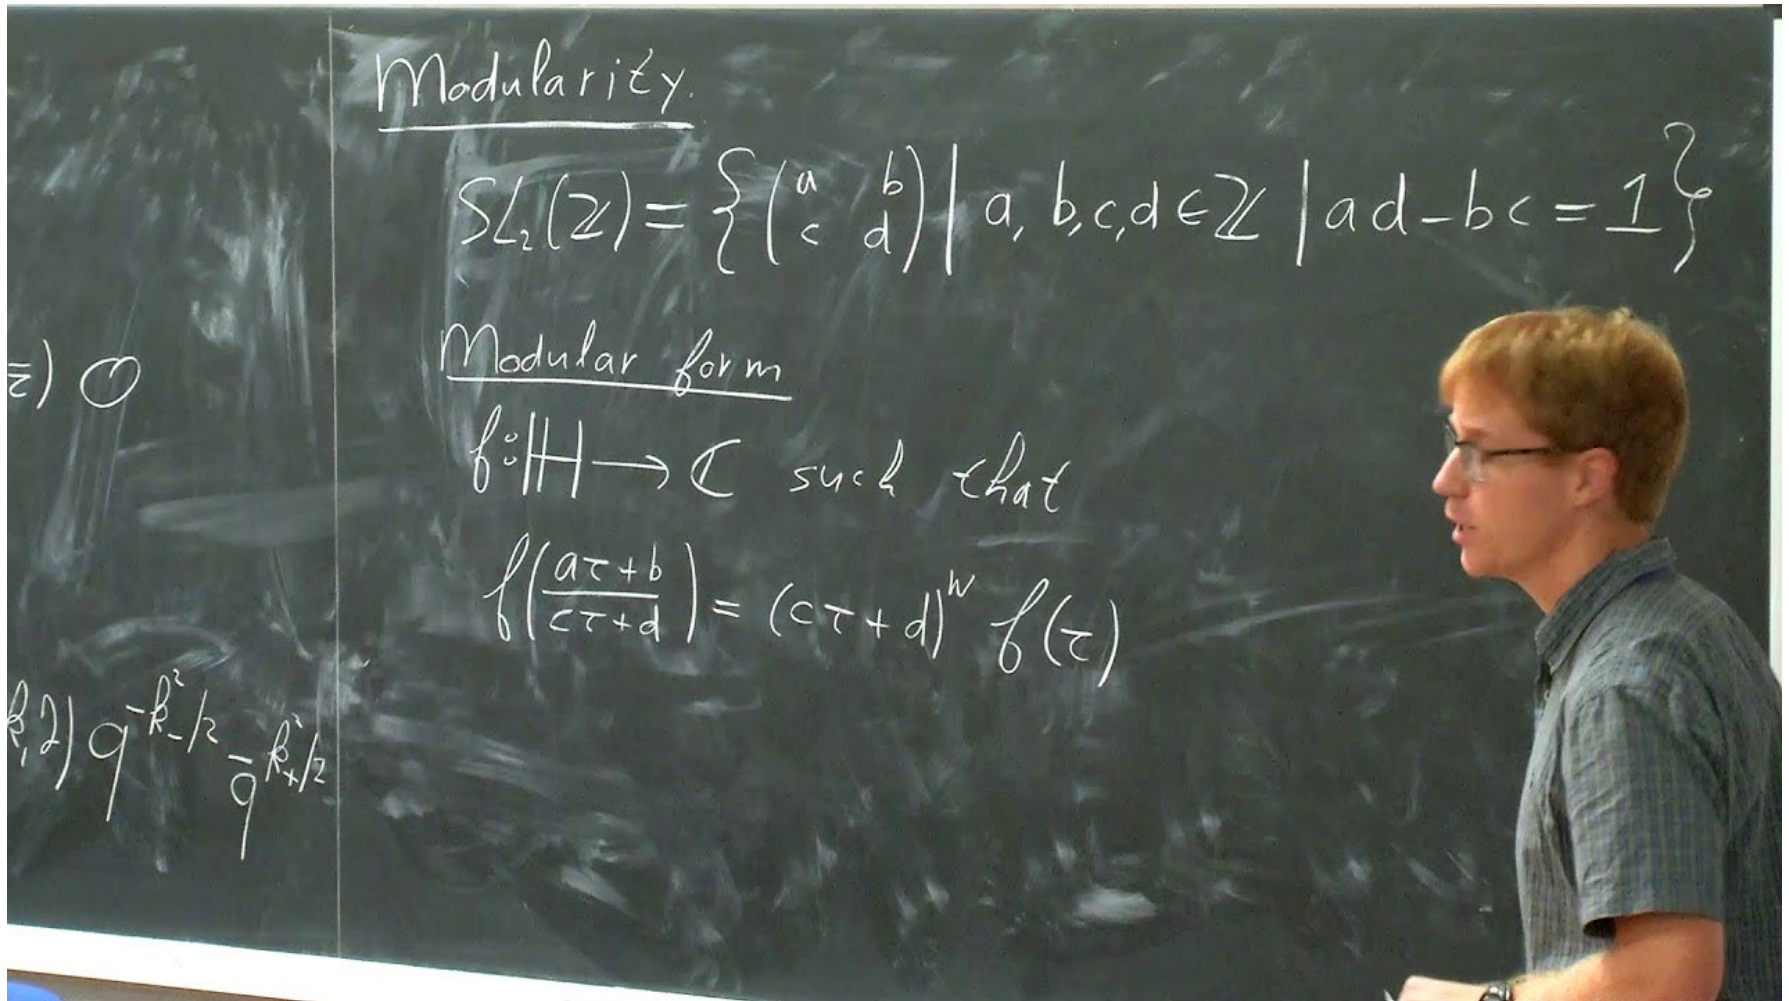 Modularity.
SL₂(ℤ) = {(a b
c d) | a, b, c, d ∈ ℤ | ad - bc = 1}
Modular form
f: ℍ → ℂ such that
f((aτ+b)/(cτ+d)) = (cτ+d)^w f(τ)
q^{-k₋²/2} q̄^{k₊²/2}